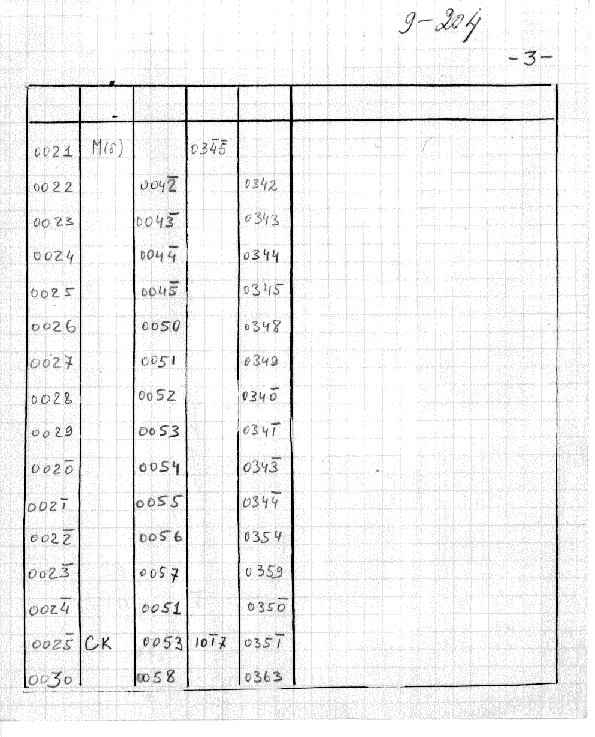 9-204
-3-
0021 М(б) 034̅5̅
0022 004̅2̅ 0342
0023 0043̅ 0343
0024 0044̅ 0344
0025 0045̅ 0345
0026 0050 0348
0027 0051 0349
0028 0052 0340̅
0029 0053 0341̅
0020̅ 0054 0343̅
0021̅ 0055 0344̅
0022̅ 0056 0354
0023̅ 0057 0359
0024̅ 0051 0350̅
0025̅ СК 0053 101̅7 0351̅
0030 0058 0363